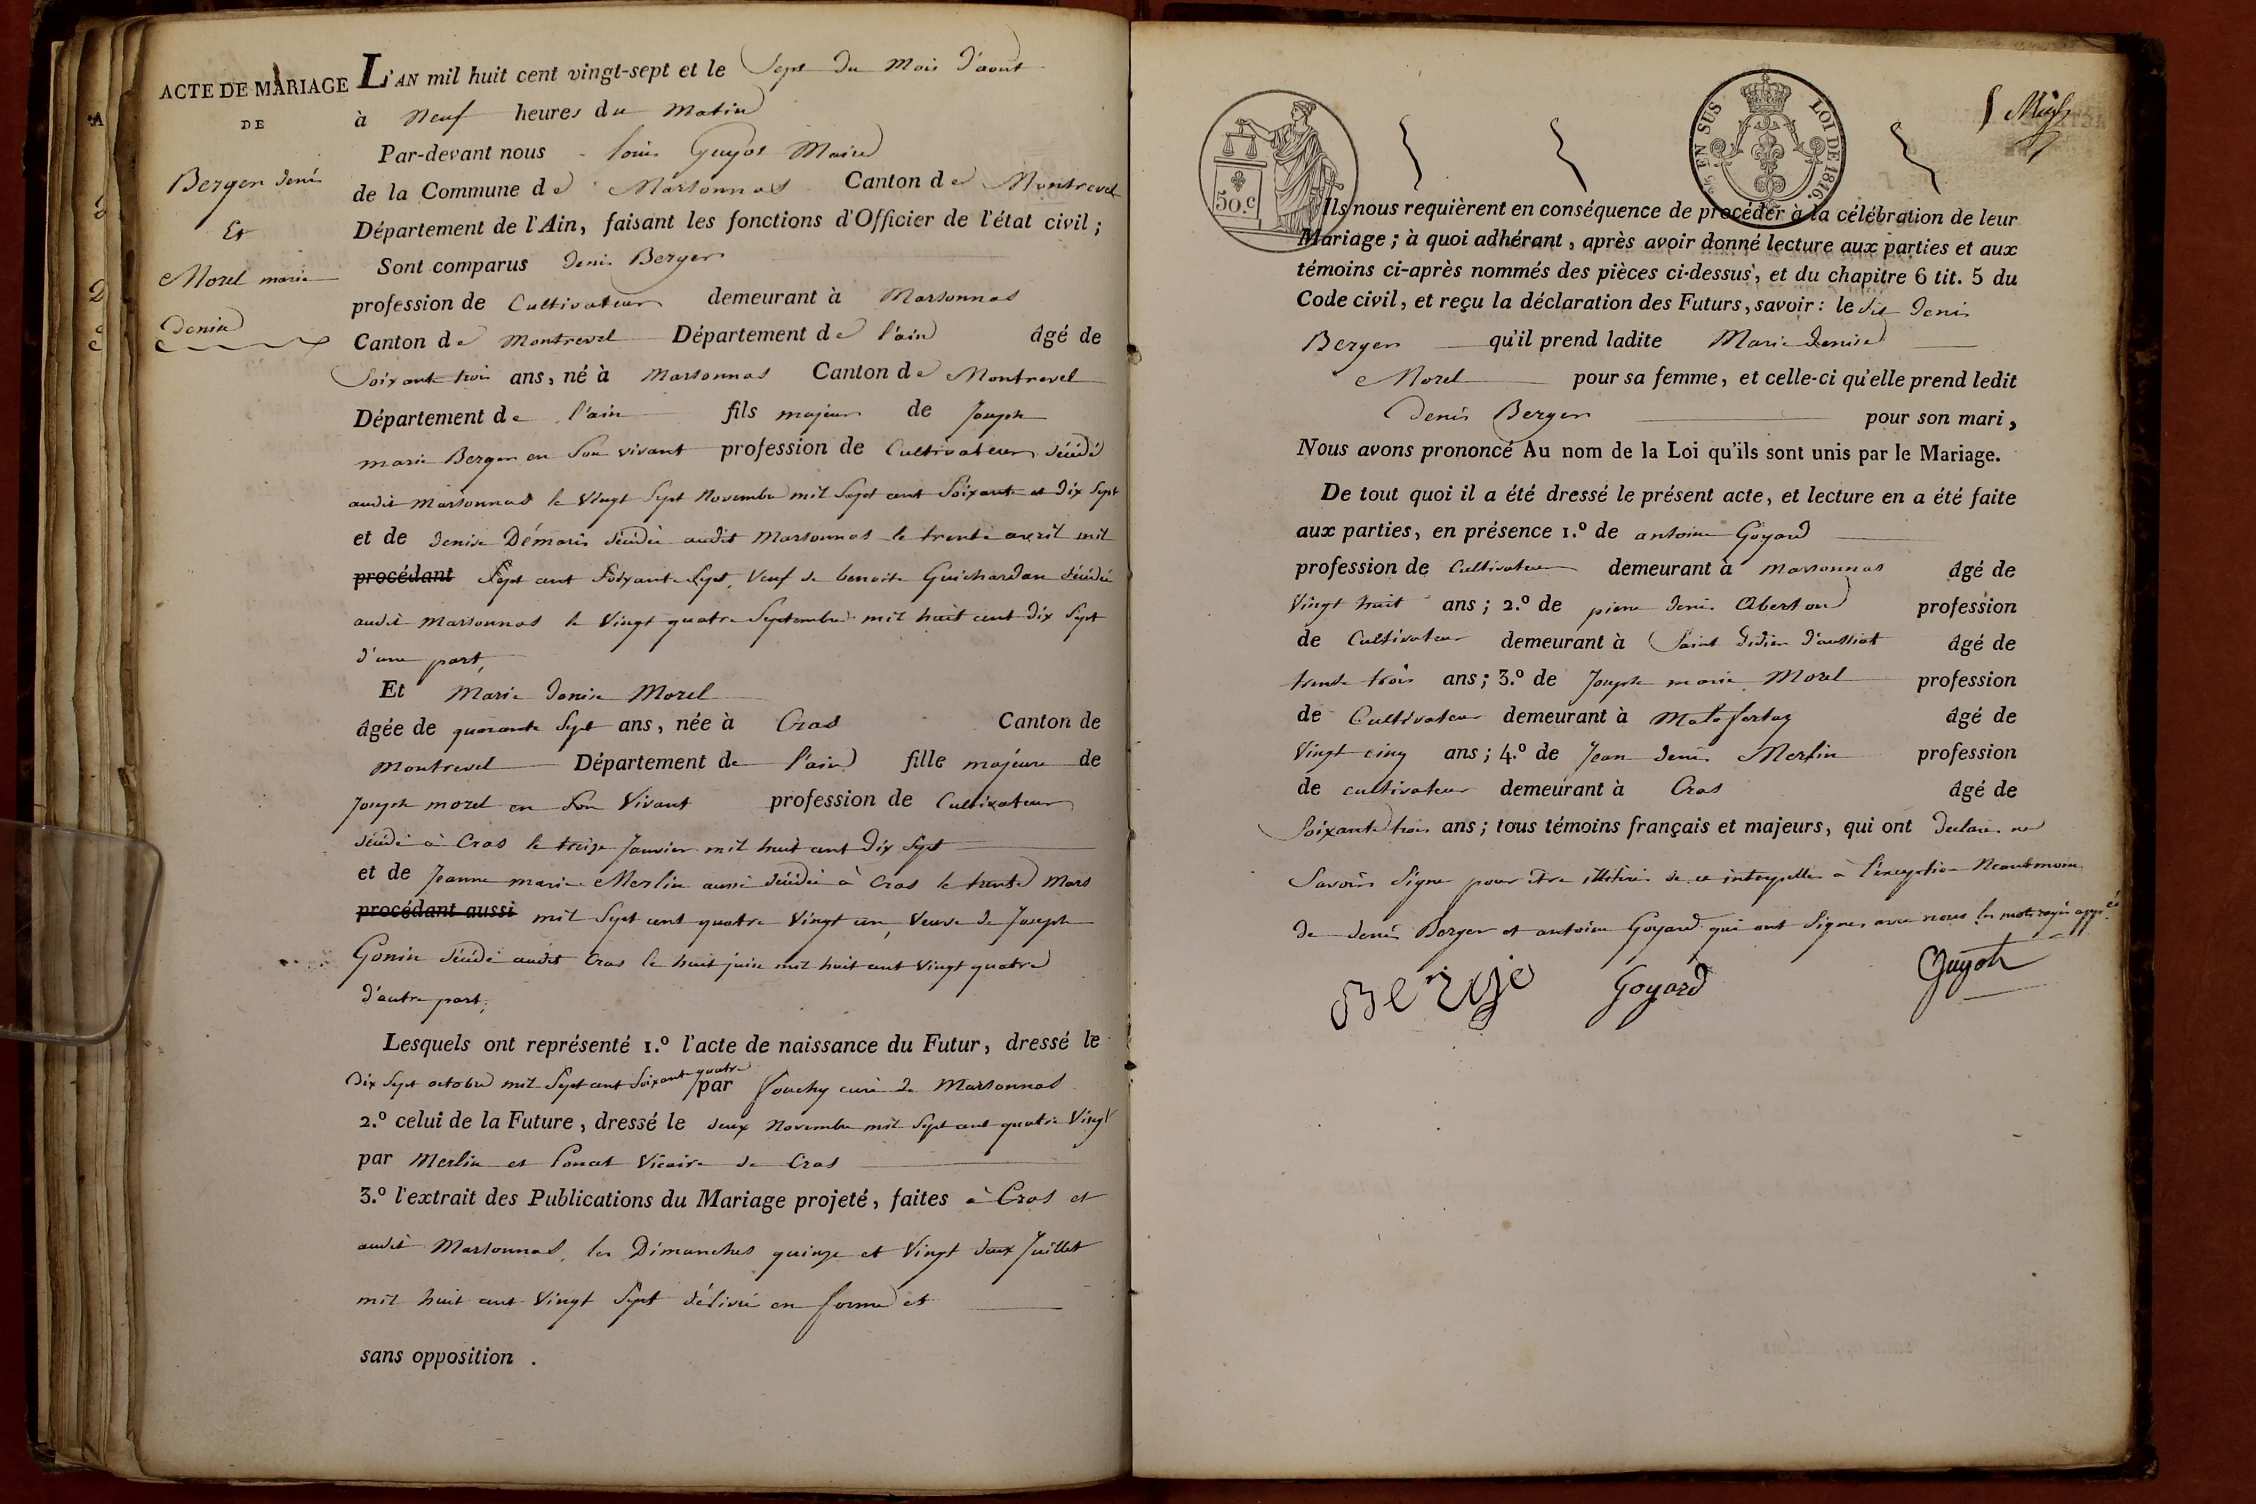 ACTE DE MARIAGE
DE
Berger denis
Et
Morel marie
denise
L'AN mil huit cent vingt-sept et le Sept du Mois d'aout
à Neuf heures du Matin
Par-devant nous Louis Guyot Maire
de la Commune de Marsonnas Canton de Montrevel
Département de l'Ain, faisant les fonctions d'Officier de l'état civil ;
Sont comparus denis Berger
profession de Cultivateur demeurant à Marsonnas
Canton de Montrevel Département de l'ain âgé de
Soixante trois ans, né à Marsonnas Canton de Montrevel
Département de l'ain fils majeur de Joseph
marie Berger en Son vivant profession de Cultivateur décédé
audit Marsonnas le Vingt Sept Novembre mil Sept cent Soixante et Dix Sept
et de denise Démaris décédée audit Marsonnas le trente avril mil
procédant Sept cent Soixante Sept, Veuf de benoite Guichardan décédée
audit Marsonnas le Vingt quatre Septembre mil huit cent Dix Sept
d'une part,
Et Marie denise Morel
âgée de quarante Sept ans, née à Cras Canton de
Montrevel Département de l'ain fille majeure de
Joseph morel en Son Vivant profession de Cultivateur
décédé à Cras le treize Janvier mil huit cent Dix Sept
et de Jeanne marie Merlin aussi décédée à Cras le trente Mars
procédant aussi mil Sept cent quatre Vingt un, Veuve de Joseph
Gonin décédé audit Cras le huit juin mil huit cent Vingt quatre
d'autre part,
Lesquels ont représenté 1.º l'acte de naissance du Futur, dressé le
Dix Sept octobre mil Sept cent Soixante quatre par Fouchy curé de Marsonnas
2.º celui de la Future, dressé le deux Novembre mil Sept cent quatre Vingt
par Merlin et Poncet Vicaire de Cras
3.º l'extrait des Publications du Mariage projeté, faites à Cras et
audit Marsonnas, les Dimanches quinze et Vingt deux Juillet
mil huit cent Vingt Sept délivré en forme et
sans opposition .
50.C
EN SUS LOI DE 1816.
Ils nous requièrent en conséquence de procéder à la célébration de leur
Mariage ; à quoi adhérant, après avoir donné lecture aux parties et aux
témoins ci-après nommés des pièces ci-dessus, et du chapitre 6 tit. 5 du
Code civil, et reçu la déclaration des Futurs, savoir : le dit denis
Berger qu'il prend ladite Marie denise
Morel pour sa femme, et celle-ci qu'elle prend ledit
denis Berger pour son mari,
Nous avons prononcé Au nom de la Loi qu'ils sont unis par le Mariage.
De tout quoi il a été dressé le présent acte, et lecture en a été faite
aux parties, en présence 1.º de antoine Goyard
profession de Cultivateur demeurant à Marsonnas âgé de
Vingt huit ans ; 2.º de pierre denis Oberton profession
de Cultivateur demeurant à Saint didier d'aussiat âgé de
trente trois ans ; 3.º de Joseph marie Morel profession
de Cultivateur demeurant à Malafertaz âgé de
Vingt cinq ans ; 4.º de Jean denis Merlin profession
de cultivateur demeurant à Cras âgé de
Soixante trois ans ; tous témoins français et majeurs, qui ont declaré ne
Savoir Signer pour être illitérés de ce interpellés à l'exception Neantmoins
de denis Berger et antoine Goyard qui ont Signés avec nous les mots rayés app.és
Berge Goyard Guyot